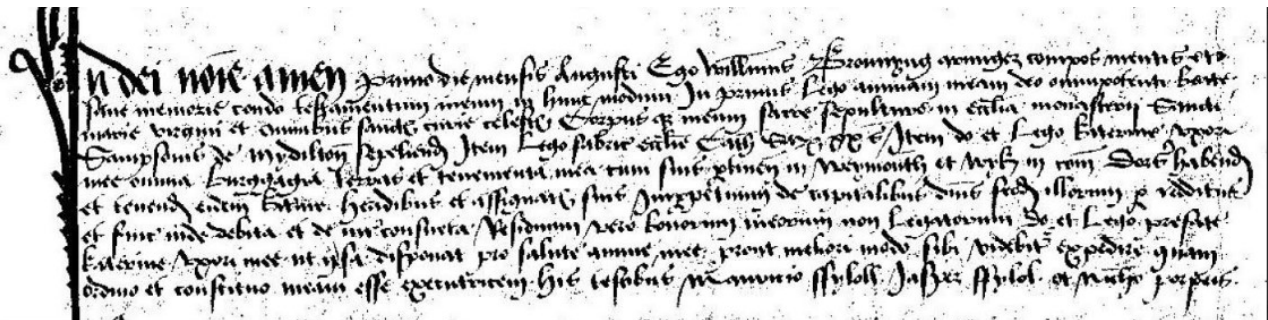 In dei noie amen Primo die mensis Augusti Ego Willmus Brownyng armiger compos mentis et
sane memorie condo testamentum meum in hunc modum In primis Lego animam meam deo omnipotenti beate
marie virgini et omnibus sanctis curie celestis Corpus que meum sacre sepulture in ecclia monasterii Sancti
Sampsonis de Mydilton sepeliend Item Lego fabrice ecclie Cath Sar xx s Item do et Lego Katerine uxori
mee omnia Burgagia terras et tenementa mea cum suis ptinen in Weymouth et Wyk in com Dors habend
et tenend eidem Katine heredibus et assignatis suis imppetuum de capitalibus dnis feod illorum p redditus
et suic inde debita et de iur consueta Residuum vero bonorum meorum non Legatorum do et Lego prefate
Katerine uxori mee ut ipsa disponat pro salute anime mee prout meliori modo sibi videbit expedire quam
ordino et constituo meam esse executricem His testibus Mauricio ffyloll Jasper ffylol et Nicho